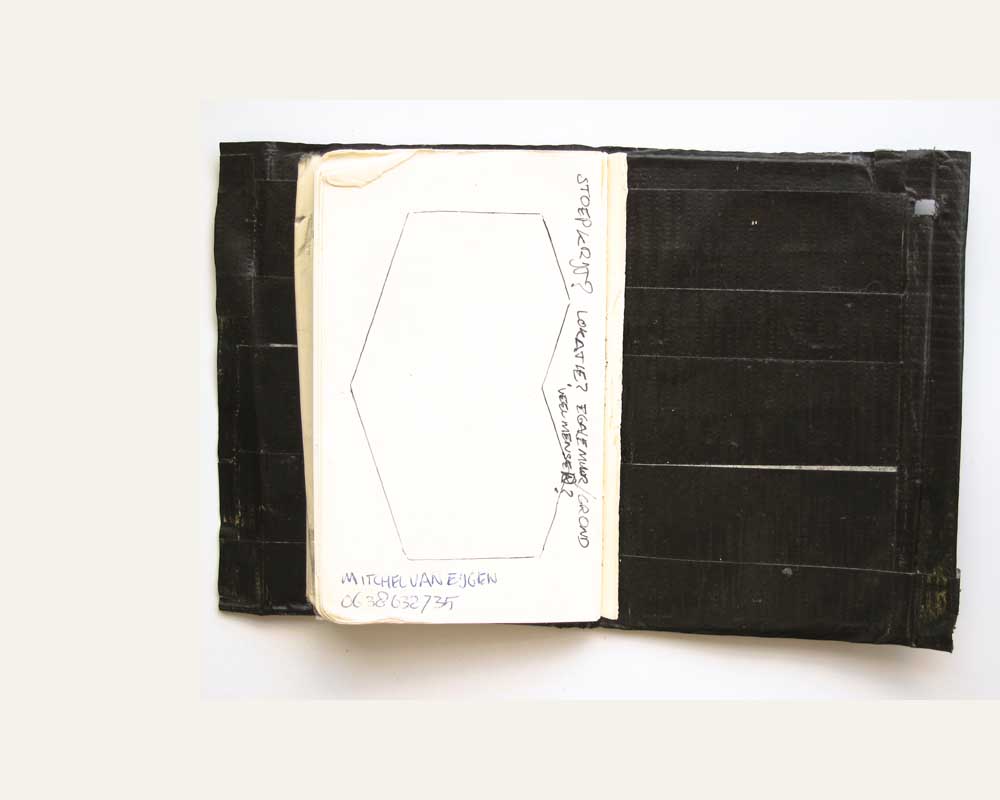 STOEPKRIJT? LOKATIE? EGALE MUUR/GROND
VEEL MENSEN?
MITCHEL VAN EIJGEN
0638632735